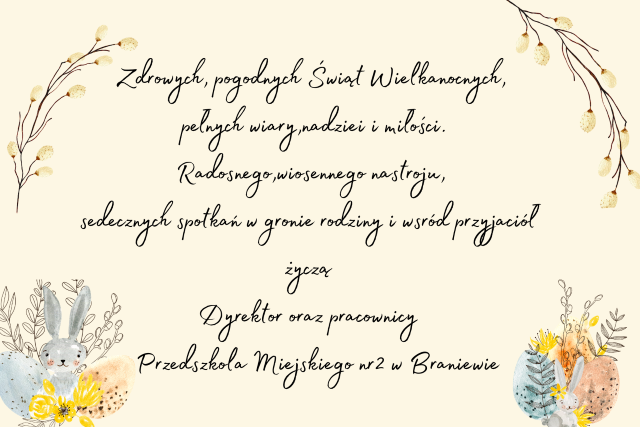 Zdrowych, pogodnych Świąt Wielkanocnych,
pełnych wiary,nadziei i miłości.
Radosnego,wiosennego nastroju,
sedecznych spotkań w gronie rodziny i wsród przyjaciół
życzą
Dyrektor oraz pracownicy
Przedszkola Miejskiego nr2 w Braniewie